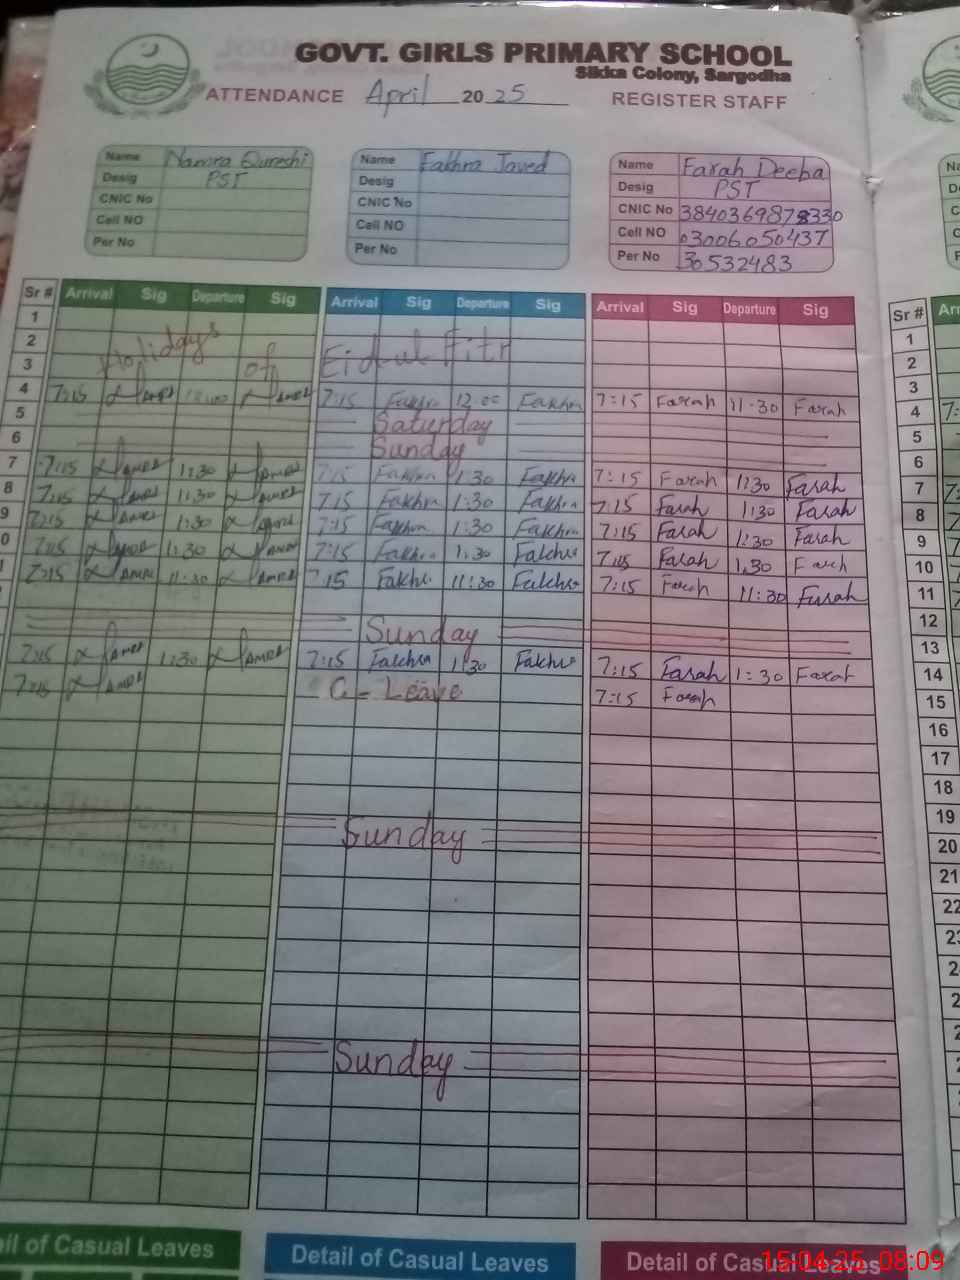 GOVT. GIRLS PRIMARY SCHOOL
Sikka Colony, Sargodha
ATTENDANCE April 2025 REGISTER STAFF
Name Namra Qureshi Name Fakhra Javed Name Farah Deeba
Desig PST Desig Desig PST
CNIC No CNIC No CNIC No
Cell NO Cell NO Cell NO 03006050437
Per No Per No Per No 30532483
Sr # Arrival Sig Departure Sig Arrival Sig Departure Sig Arrival Sig Departure Sig Sr #
1 1
2 Holidays of Eid ul Fitr 2
3 3
4 7:15 12:00 7:15 Fakhra 12:00 Fakhra 7:15 Farah 11:30 Farah 4
5 Saturday 5
6 Sunday 6
7 7:15 1:30 7:15 Fakhra 1:30 Fakhra 7:15 Farah 1:30 Farah 7
8 7:15 1:30 7:15 Fakhra 1:30 Fakhra 7:15 Farah 1:30 Farah 8
9 7:15 1:30 7:15 Fakhra 1:30 Fakhra 7:15 Farah 1:30 Farah 9
0 7:15 1:30 7:15 Fakhra 1:30 Fakhra 7:15 Farah 1:30 Farah 10
7:15 11:30 7:15 Fakhra 11:30 Fakhra 7:15 Farah 11:30 Farah 11
12
Sunday 13
7:15 1:30 7:15 Fakhra 1:30 Fakhra 7:15 Farah 1:30 Farah 14
7:15 C - Leave 7:15 Farah 15
16
17
18
19
Sunday 20
21
22
Sunday
Detail of Casual Leaves Detail of Casual Leaves Detail of Casual Leaves
15-04-25 08:09